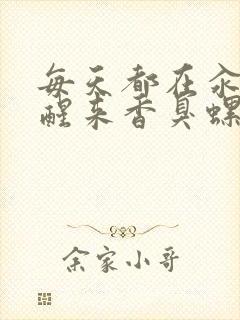 每天都在氽
醒来香臭螺
余家小哥